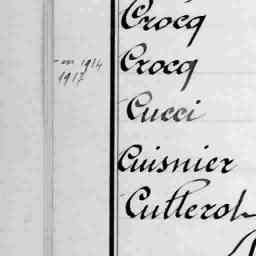 Crocq
- en 1914 Crocq
1917
Cucci
Cuisnier